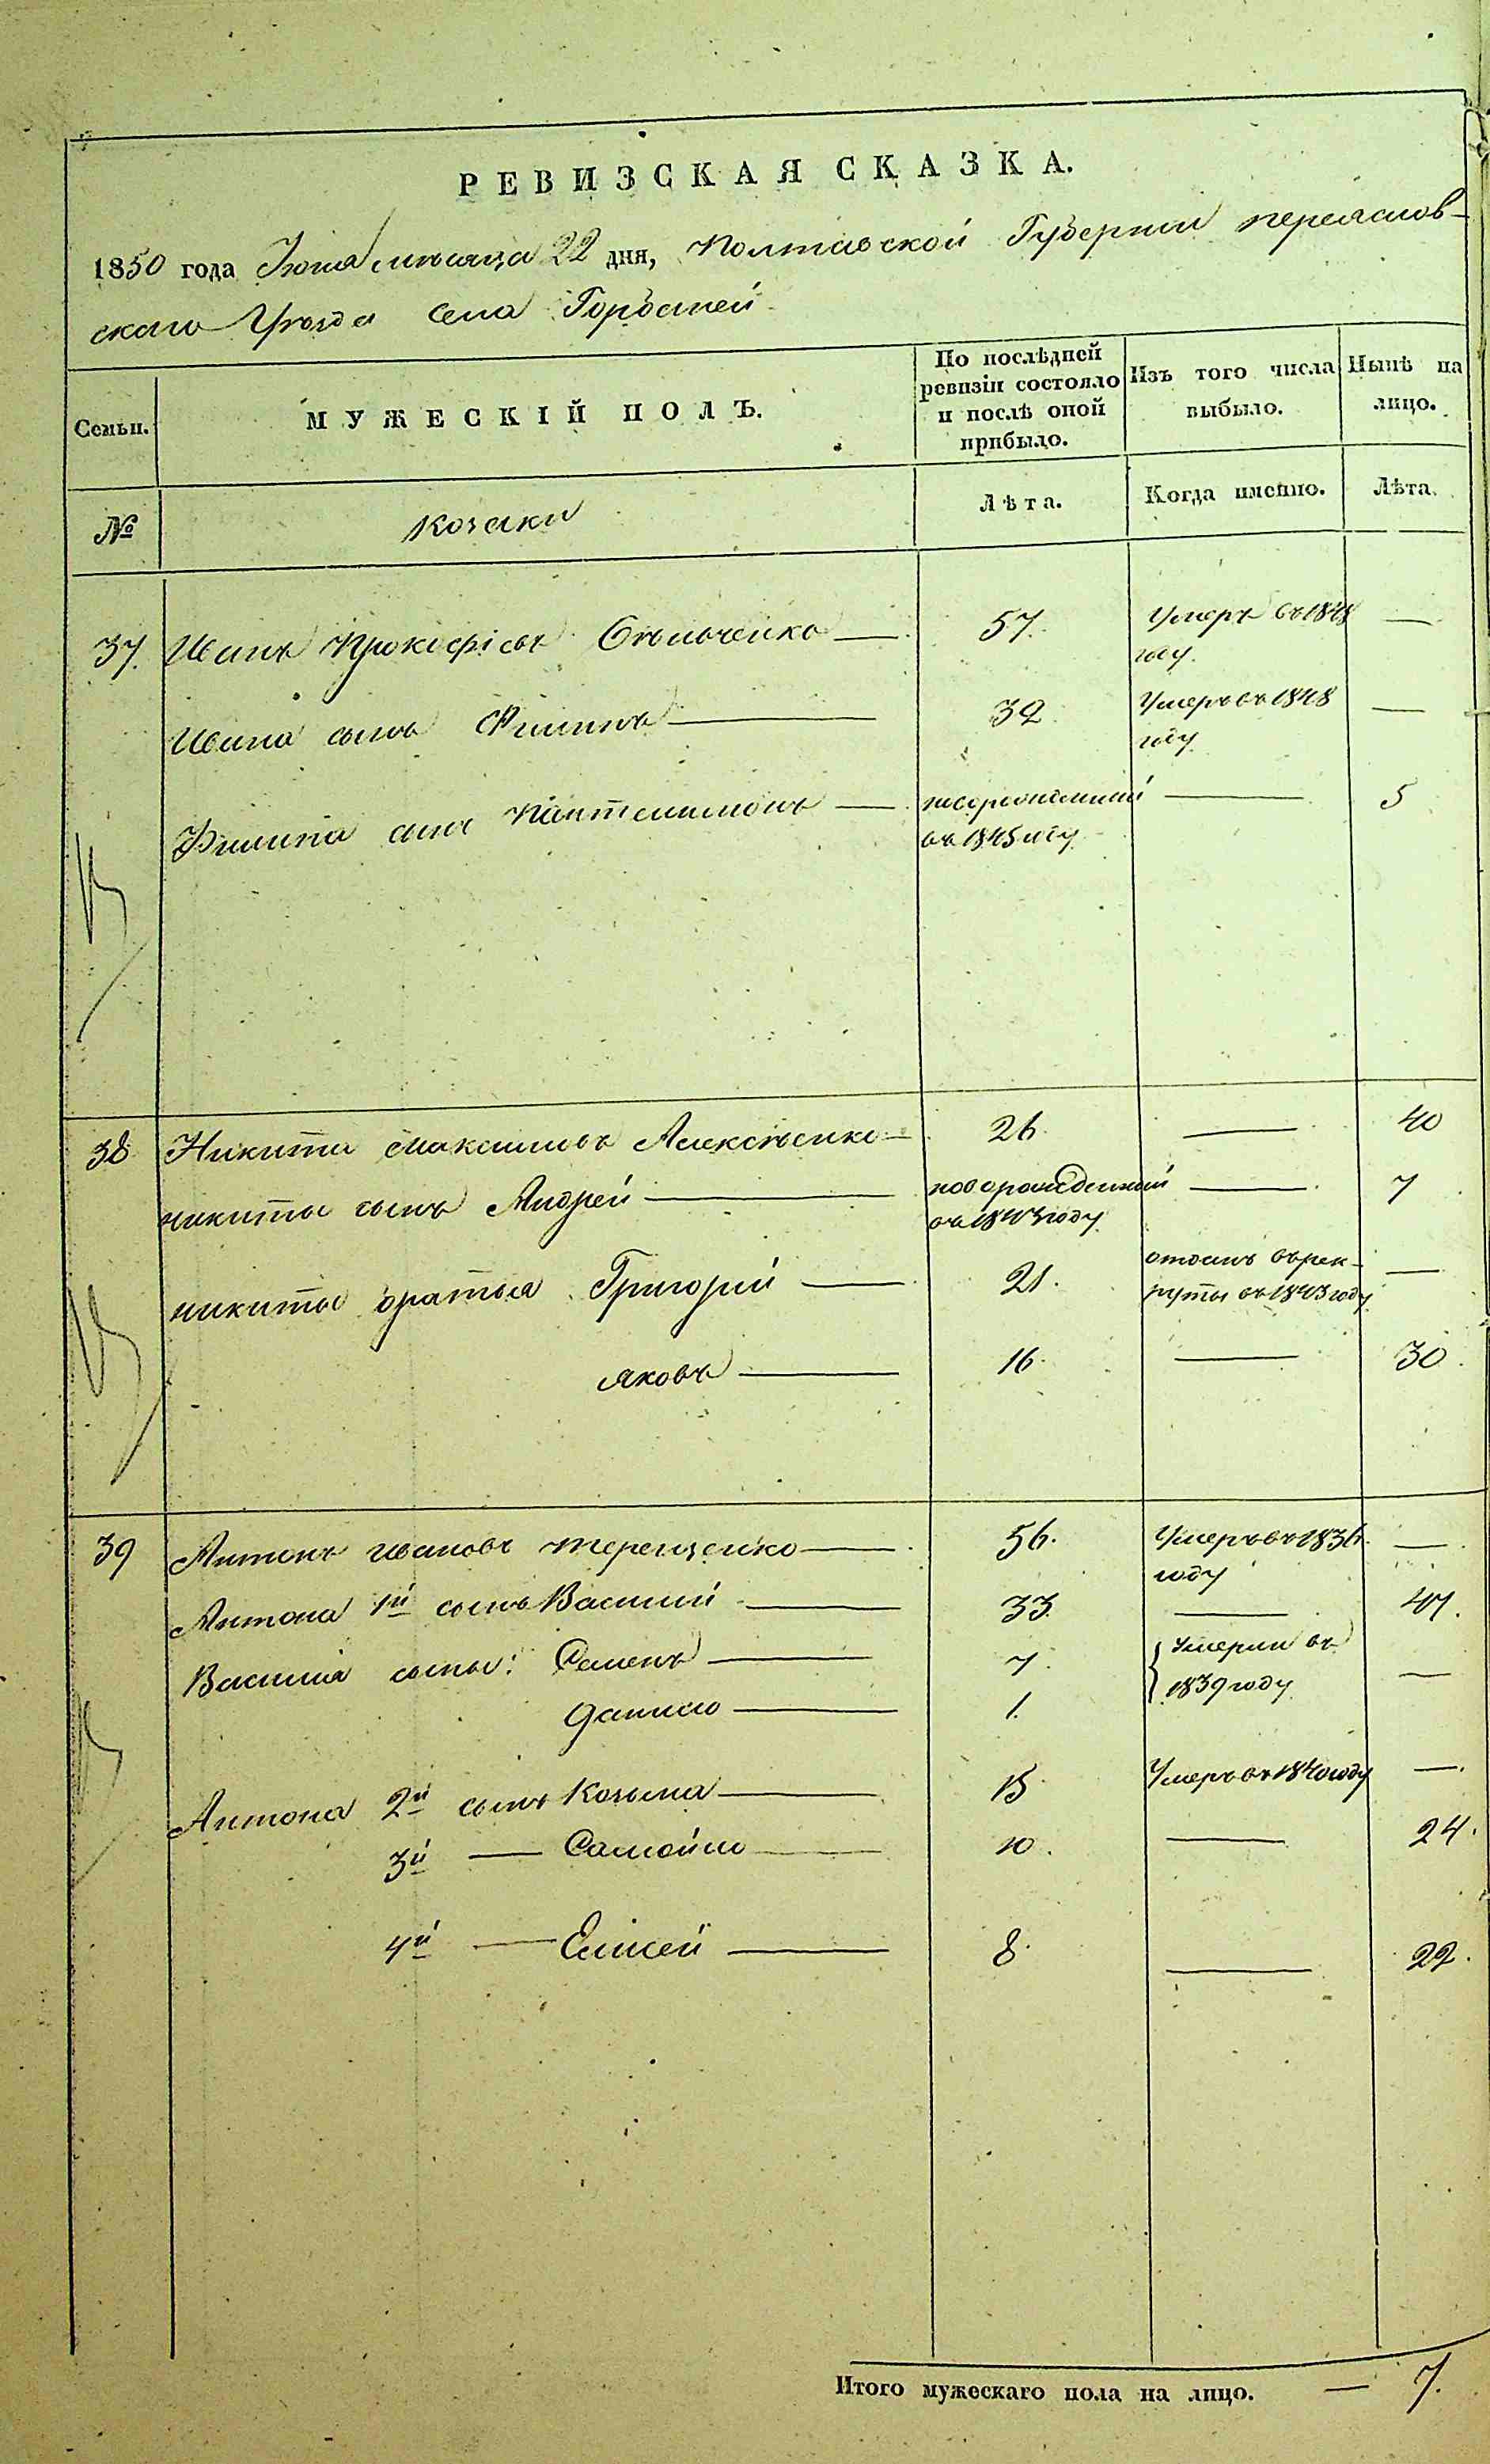 РЕВИЗСКАЯ СКАЗКА.
1850 года Іюня мѣсяца 22 дня, Полтавской Губерніи переяслов-
скаго Уѣзда села Горбаней
Семьи.
МУЖЕСКІЙ ПОЛЪ.
По послѣдней ревизіи состояло и послѣ оной прибыло.
Изъ того числа выбыло.
Ныпѣ на лицо.
№
Козаки
Лѣта.
Когда именно.
Лѣта.
37. Иванъ Прокофіевъ — 57. Умеръ въ 1848 году. —
Ивана сынъ Филипъ — 32 Умеръ въ 1848 году —
Филипа сынъ Пантелимонъ — новорожденный въ 1845 году — 5
38 Никита Максимовъ Алексѣенко — 26 — 40
никиты сынъ Андрей — новорожденный въ 1843 году — 7
никиты братья Григорій — 21. отданъ въ рек-
руты въ 1843 году —
яковъ — 16. — 30.
39 Антонъ Ивановъ Терещенко — 56. Умеръ въ 1836 году —
Антона 1й сынъ Василий — 33. — 47.
Василия сыны: Семенъ — 7. } Умерли въ
1839 году —
Данило — 1.
Антона 2й сынъ Козьма — 15 Умеръ въ 1840 году —.
3й — Самойло — 10. — 24.
4й — Елисей — 8. — 22.
Итого мужескаго пола на лицо. — 7.